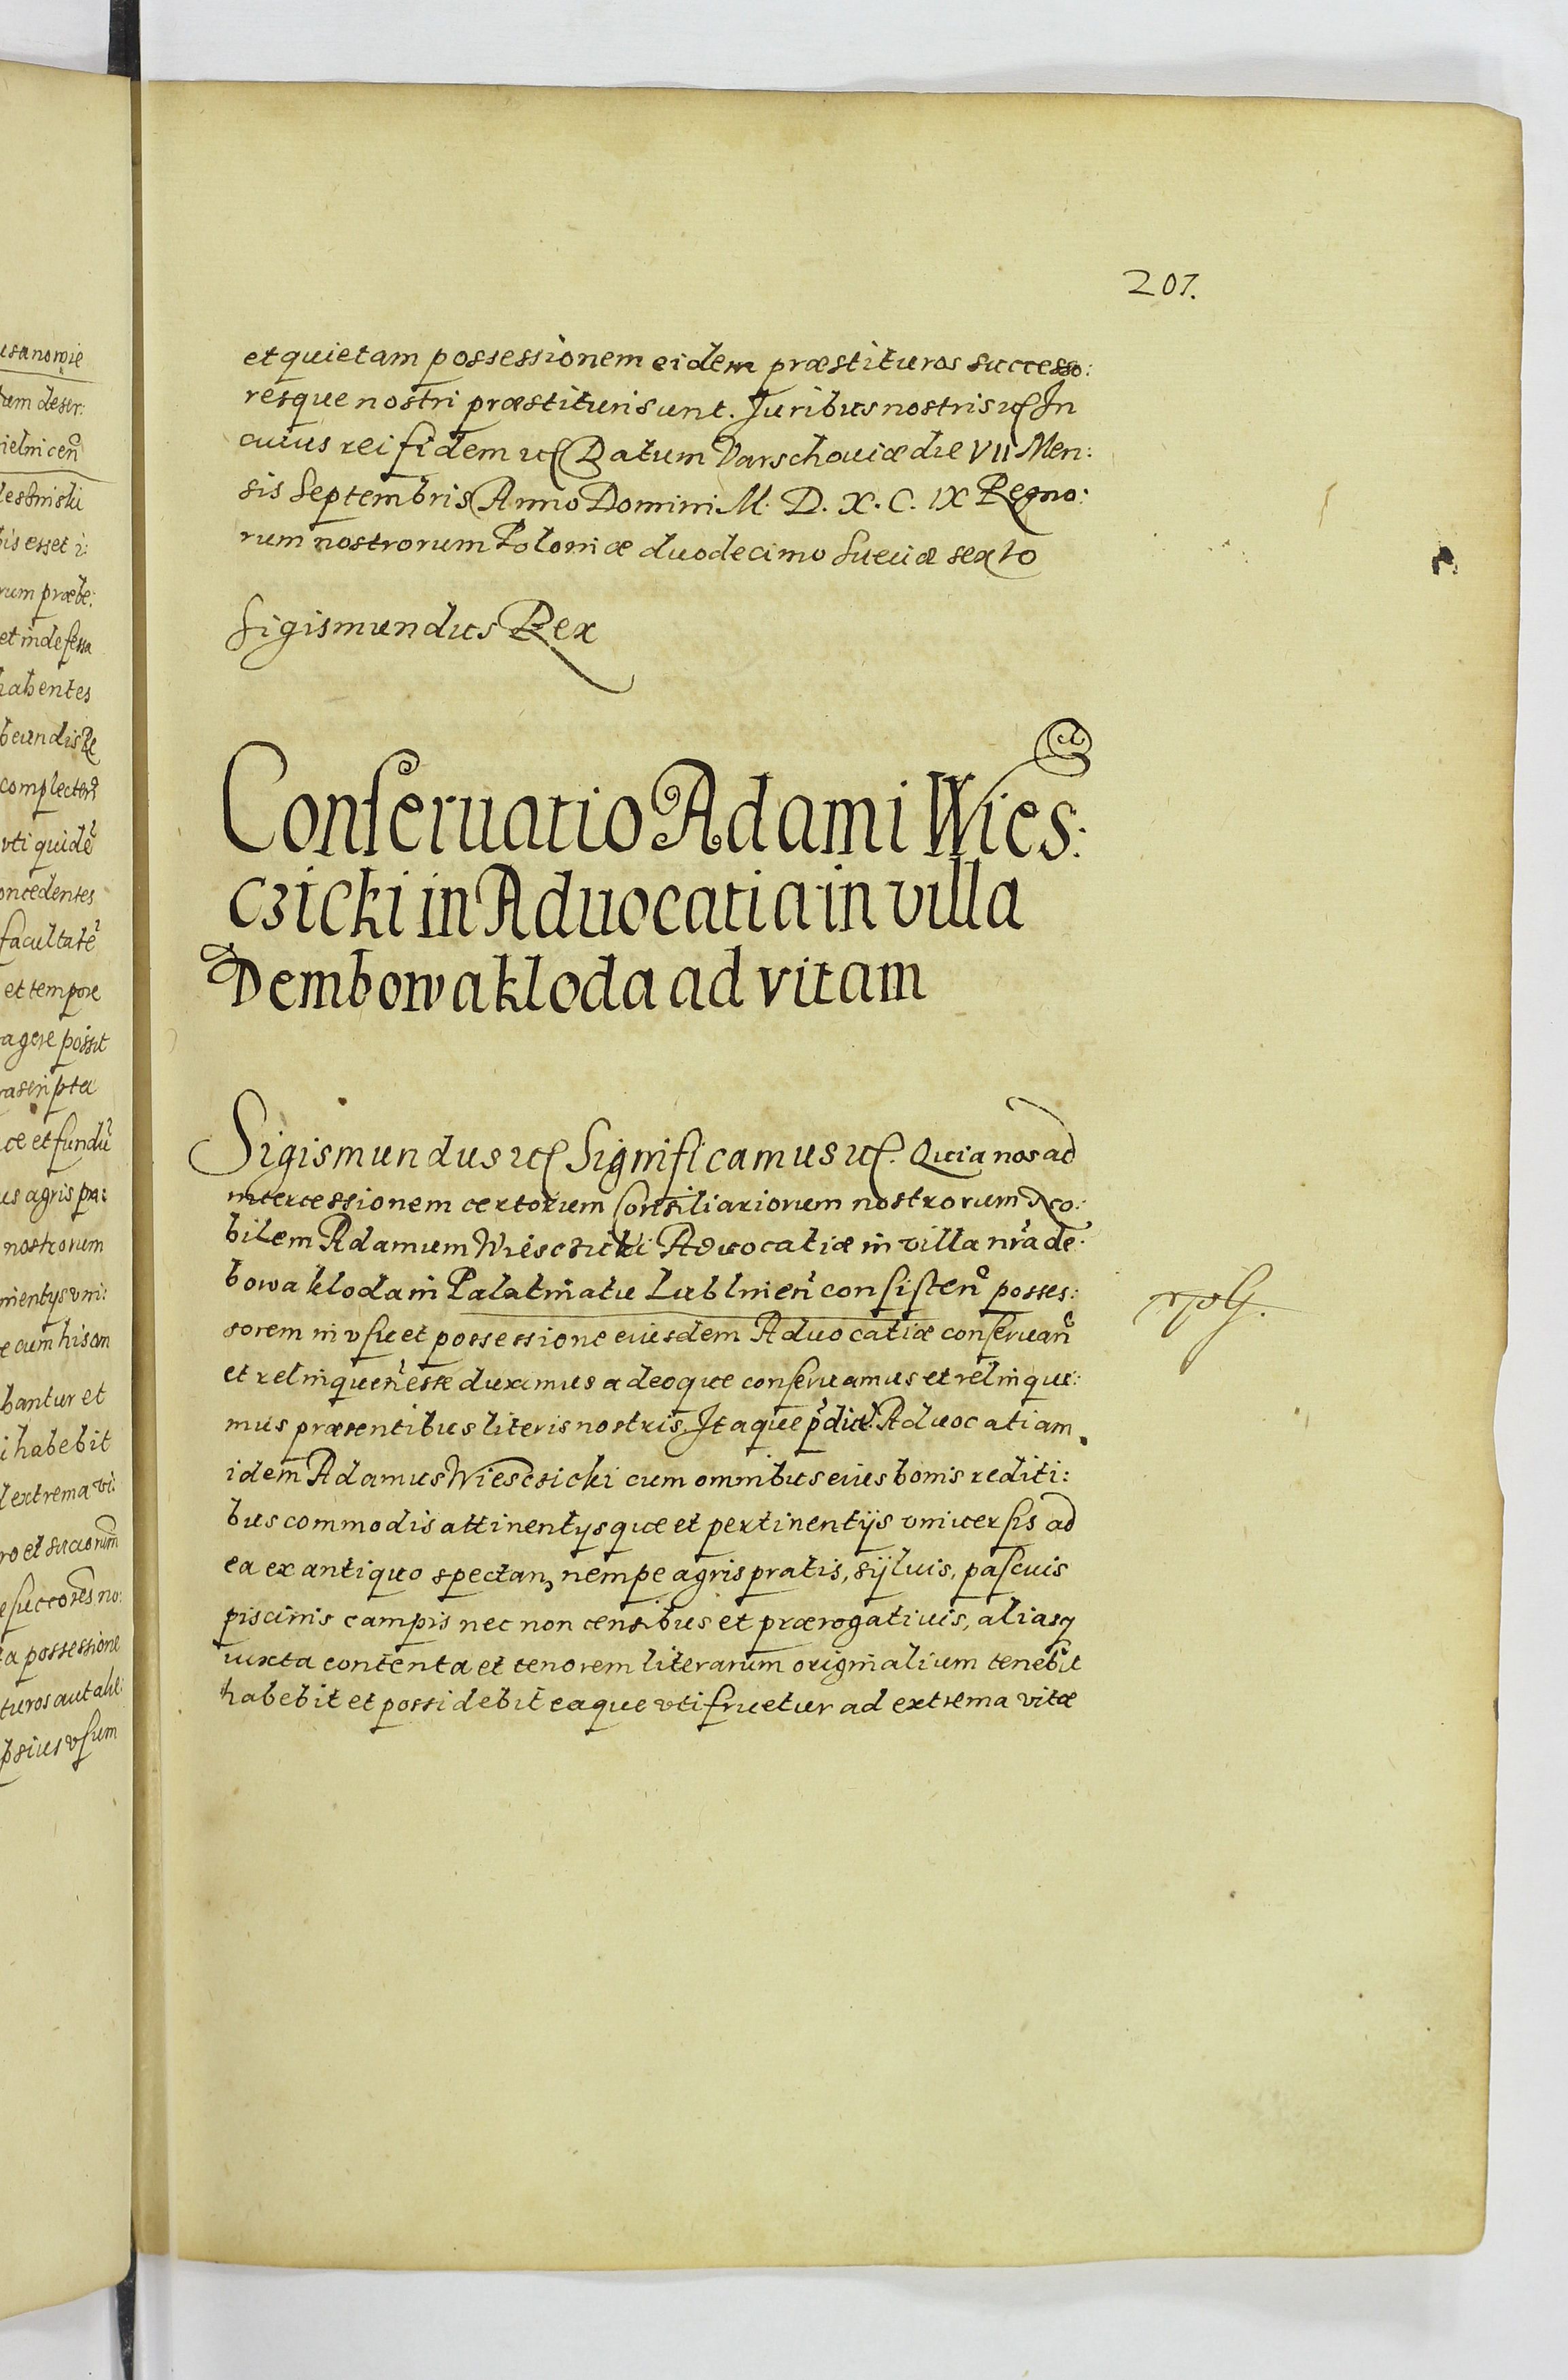 207.
et quietam possessionem eidem præstituros successo:
resque nostri præstituri sunt. Juribus nostris etc In
cuius rei fidem etc Datum Varschouiæ die VII Men:
sis Septembris Anno Domini M. D. X. C. IX Regno:
rum nostrorum Poloniæ duodecimo Sueciæ sexto
Sigismundus Rex
Conseruatio Adami Wies:
czicki in Aduocatia in villa
Dembowakloda ad vitam
Sigismundus etc Significamus etc. Quia nos ad
intercessionem certorum Consiliariorum nostrorum No:
bilem Adamum Wiesczicki Aduocatiæ in villa nr̃a de:
bowakloda in Palatinatu Lublinen̄ consisten̄ posses:
sorem in vsu et possessione eiusdem Aduocatiæ conseruan̄
et relinquen̄ esse duximus adeoque conseruamus et relinqui:
mus præsentibus literis nostris. Itaque p̄dict. Aduocatiam
idem Adamus Wiesczicki cum omnibus eius bonis rediti:
bus commodis attinentysque et pertinentijs vniuersis ad
ea ex antiquo spectan, nempe agris pratis, sijluis, pascuis
piscinis campis nec non censibus et prærogatiuis, aliasq
iuxta contenta et tenorem literarum originalium tenebit
habebit et possidebit eaque vtifruetur ad extrema vitæ
usanowie
tum descr:
ielnicen̄
bis esset i:
rum præbe:
et indefessa
habentes
beundis Re
complecten̄
vti quidē
oncedentes
facultatē
et tempore
agere possit
rascripta
ce et fundū
us agris pra:
nostrorum
nentys vni:
e cum his om
bantur et
i habebit
l extrema vi:
ro et sucorum
e succores no:
ta possessione
turos aut ali:
psius vsum